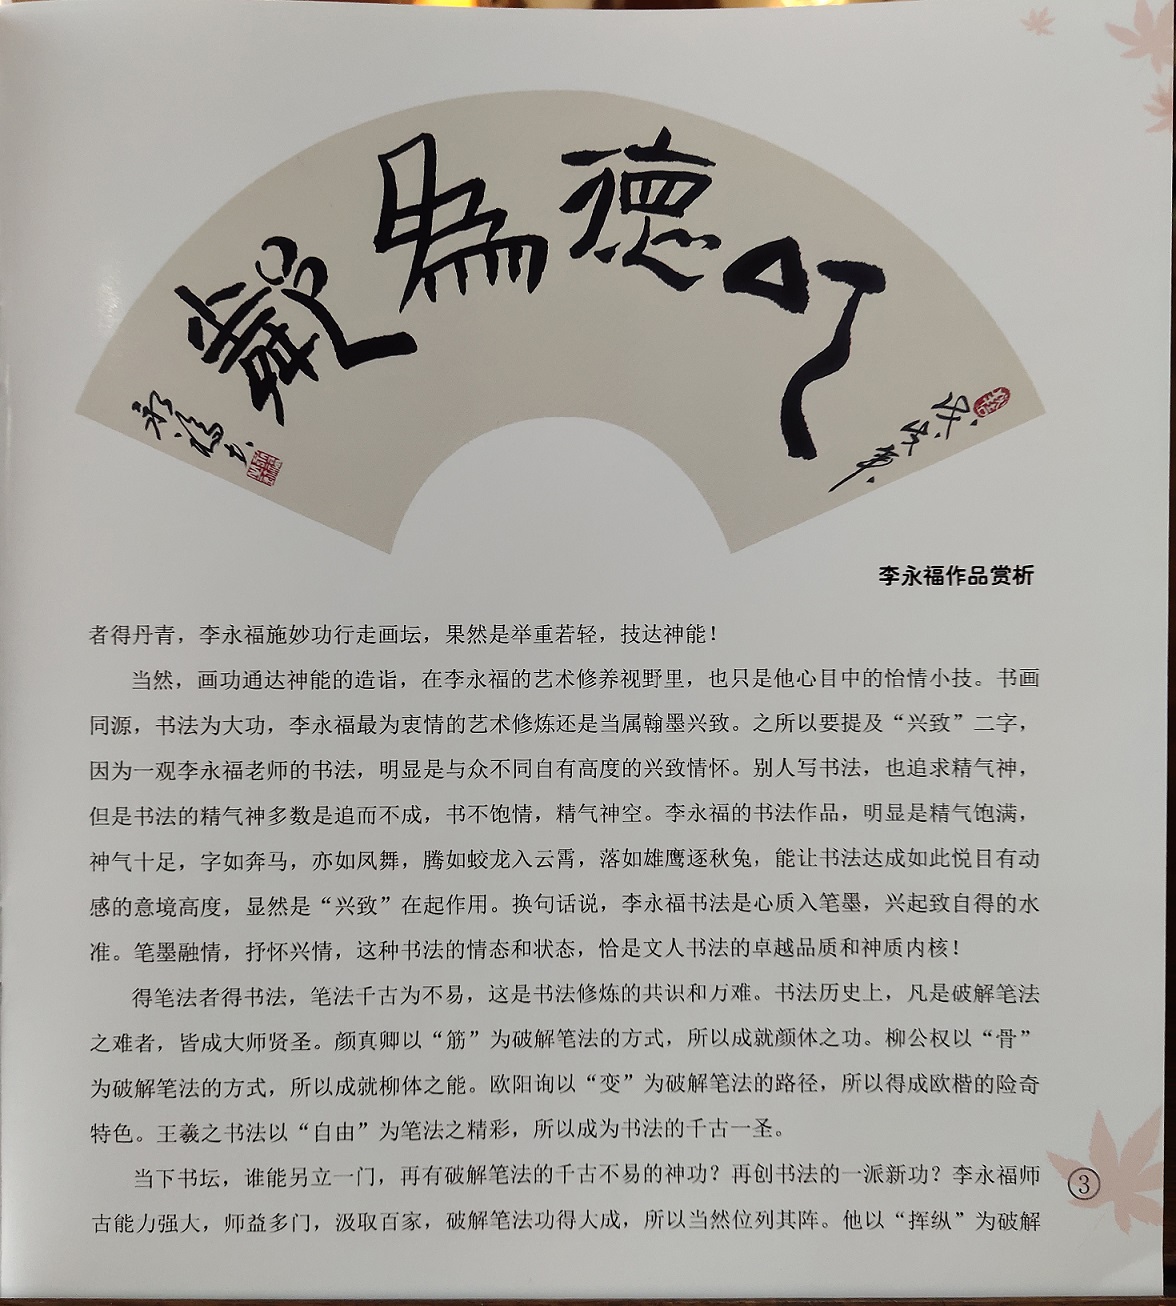 以德為鄰
永福书
李永福作品赏析
者得丹青，李永福施妙功行走画坛，果然是举重若轻，技达神能！
当然，画功通达神能的造诣，在李永福的艺术修养视野里，也只是他心目中的怡情小技。书画
同源，书法为大功，李永福最为衷情的艺术修炼还是当属翰墨兴致。之所以要提及“兴致”二字，
因为一观李永福老师的书法，明显是与众不同自有高度的兴致情怀。别人写书法，也追求精气神，
但是书法的精气神多数是追而不成，书不饱情，精气神空。李永福的书法作品，明显是精气饱满，
神气十足，字如奔马，亦如凤舞，腾如蛟龙入云霄，落如雄鹰逐秋兔，能让书法达成如此悦目有动
感的意境高度，显然是“兴致”在起作用。换句话说，李永福书法是心质入笔墨，兴起致自得的水
准。笔墨融情，抒怀兴情，这种书法的情态和状态，恰是文人书法的卓越品质和神质内核！
得笔法者得书法，笔法千古为不易，这是书法修炼的共识和万难。书法历史上，凡是破解笔法
之难者，皆成大师贤圣。颜真卿以“筋”为破解笔法的方式，所以成就颜体之功。柳公权以“骨”
为破解笔法的方式，所以成就柳体之能。欧阳询以“变”为破解笔法的路径，所以得成欧楷的险奇
特色。王羲之书法以“自由”为笔法之精彩，所以成为书法的千古一圣。
当下书坛，谁能另立一门，再有破解笔法的千古不易的神功？再创书法的一派新功？李永福师
古能力强大，师益多门，汲取百家，破解笔法功得大成，所以当然位列其阵。他以“挥纵”为破解
3